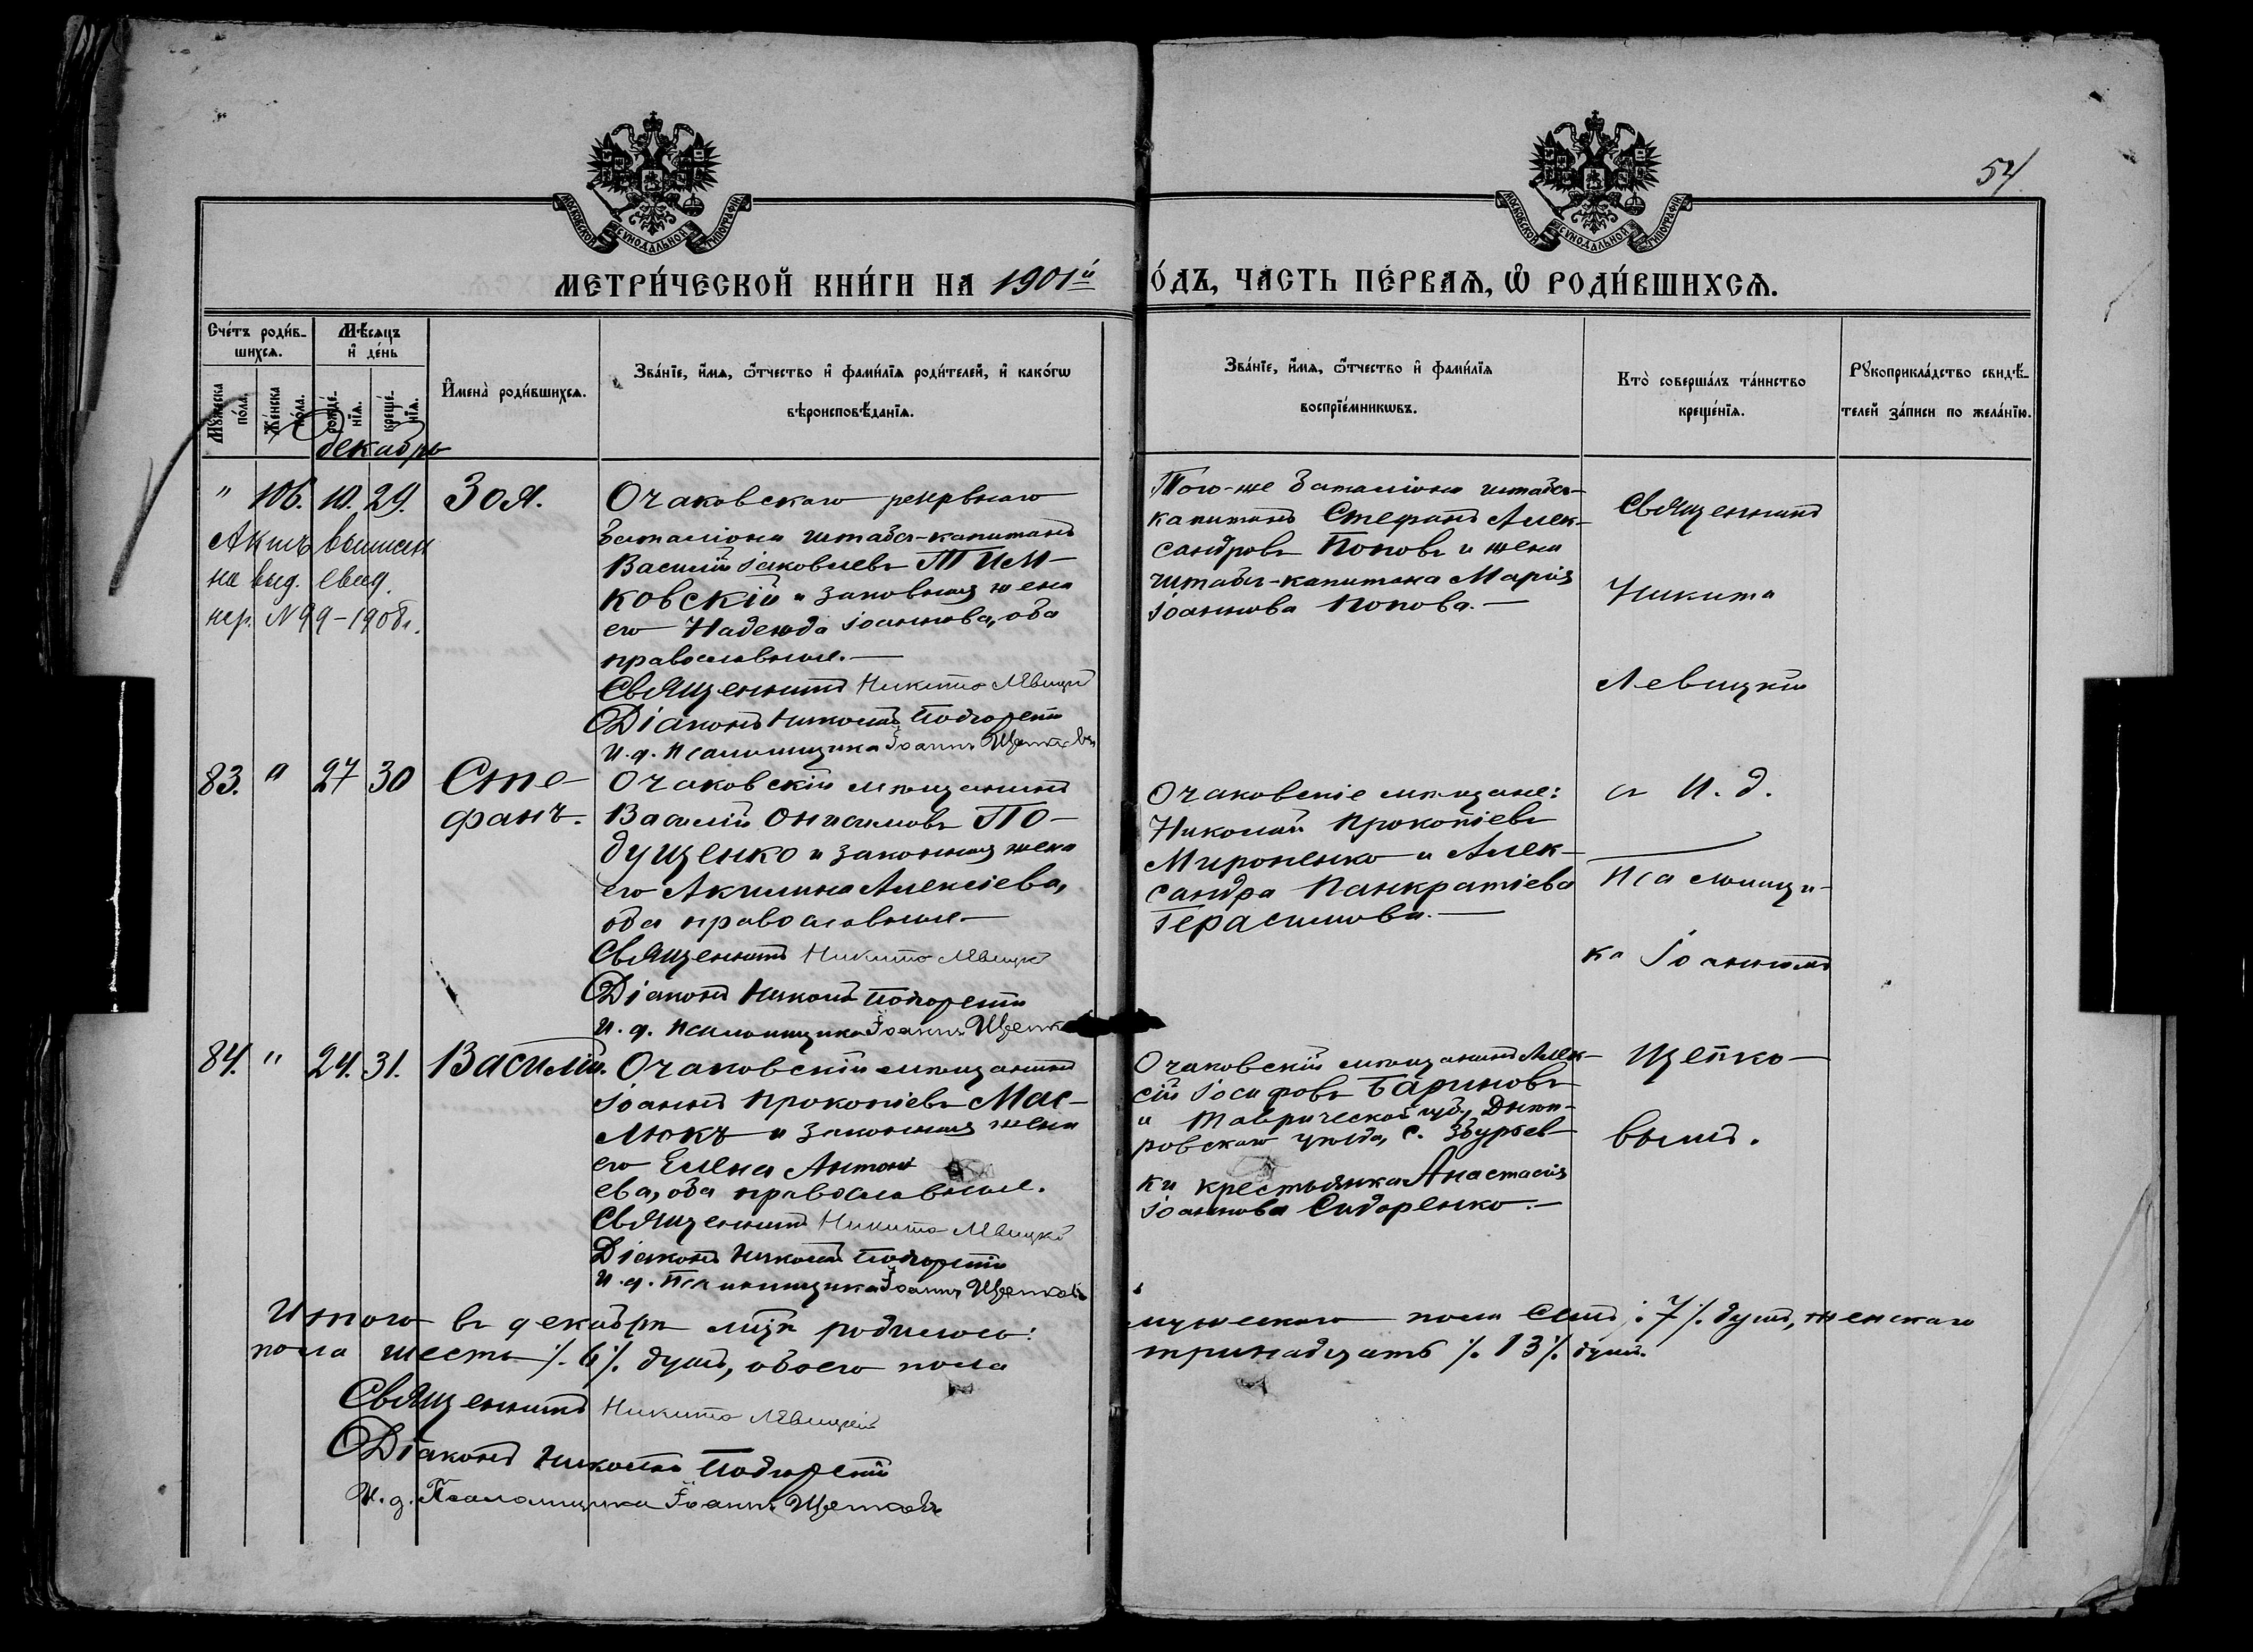 54
МОСКОВСКОЙ СУНОДАЛЬНОЙ ТИПОГРАФІИ
МОСКОВСКОЙ СУНОДАЛЬНОЙ ТИПОГРАФІИ
МЕТРИ́ЧЕСКОЙ КНИ́ГИ НА 1901й
О́ДЪ, ЧА́СТЬ ПЕ́РВАѦ, Ѡ҆ РОДИ́ВШИХСѦ.
Сче́тъ роди́в-
шихсѧ.
Мѣ́сѧцъ
и҆ де́нь
Мꙋ́жеска
по́ла.
Же́нска
по́ла.
рожде́-
нїѧ.
креще́-
нїѧ.
И҆мена̀ роди́вшихсѧ.
Зва́нїе, и҆́мѧ, ѻ҆́тчество и҆ фами́лїѧ роди́телей, и҆ како́гѡ
вѣроисповѣ́данїѧ.
Зва́нїе, и҆́мѧ, ѻ҆́тчество и҆ фами́лїѧ
воспрїе́мникѡвъ.
Кто̀ соверша́лъ та́инство
креще́нїѧ.
Рꙋкоприкла́дство свидѣ́-
телей за́писи по жела́нїю.
декабрь
" 106. 10. 29. Зоя.
Очаковскаго резервнаго
баталіона штабсъ-капитанъ
Василій Іаковлевъ ТИМ-
КОВСКІЙ и законная жена
его Надежда Іоаннова, оба
православные.—
Священникъ Никита Левицкій
Діаконъ Николай
И. д. Псаломщика Іоаннъ Щепковъ
Актъ выписан
на выд. свид.
нер. №99-1908г.
Того-же баталіона штабсъ-
капитанъ Стефанъ Алек-
сандровъ Поповъ и жена
штабсъ-капитана Марія
Іоаннова Попова.—
Священникъ
Никита
Левицкій
83. " 27 30 Сте-
фанъ.
Очаковскій мѣщанинъ
Василій Онисимовъ ПО-
ДУЩЕНКО и законная жена
его Акилина Алексіева,
оба православные—
Священникъ Никита Левицкій
Діаконъ Николай
И. д. Псаломщика Іоаннъ Щепк
Очаковскіе мѣщане:
Николай Прокопіевъ
Мироненко и Алек-
сандра Панкратіева
Герасимова.—
съ И. д.
Псаломщи-
ка Іоанномъ
84. " 24. 31. Василій.
Очаковскій мѣщанинъ
Іоаннъ Прокопіевъ Мас-
люкъ и законная жена
его Елена Антоні
ева, оба православные.
Священникъ Никита Левицкій
Діаконъ Николай
И. д. Псаломщика Іоаннъ Щепковъ
Очаковскій мѣщанинъ Алек-
сій Іосифовъ Бариновъ
и Таврической губ., Днѣп-
ровскаго уѣзда, с. Збурьев-
ки крестьянка Анастасія
Іоаннова Сидоренко.—
Щепко-
вымъ.
Итого въ декабрѣ мцѣ родилось:
мужескаго пола семь ./. 7 ./. душъ, женскаго
пола шесть ./. 6 ./. душъ, обоего пола
тринадцать ./. 13 ./. душъ.
Священникъ Никита Левицкій
Діаконъ Николай
И. д. Псаломщика Іоаннъ Щепковъ